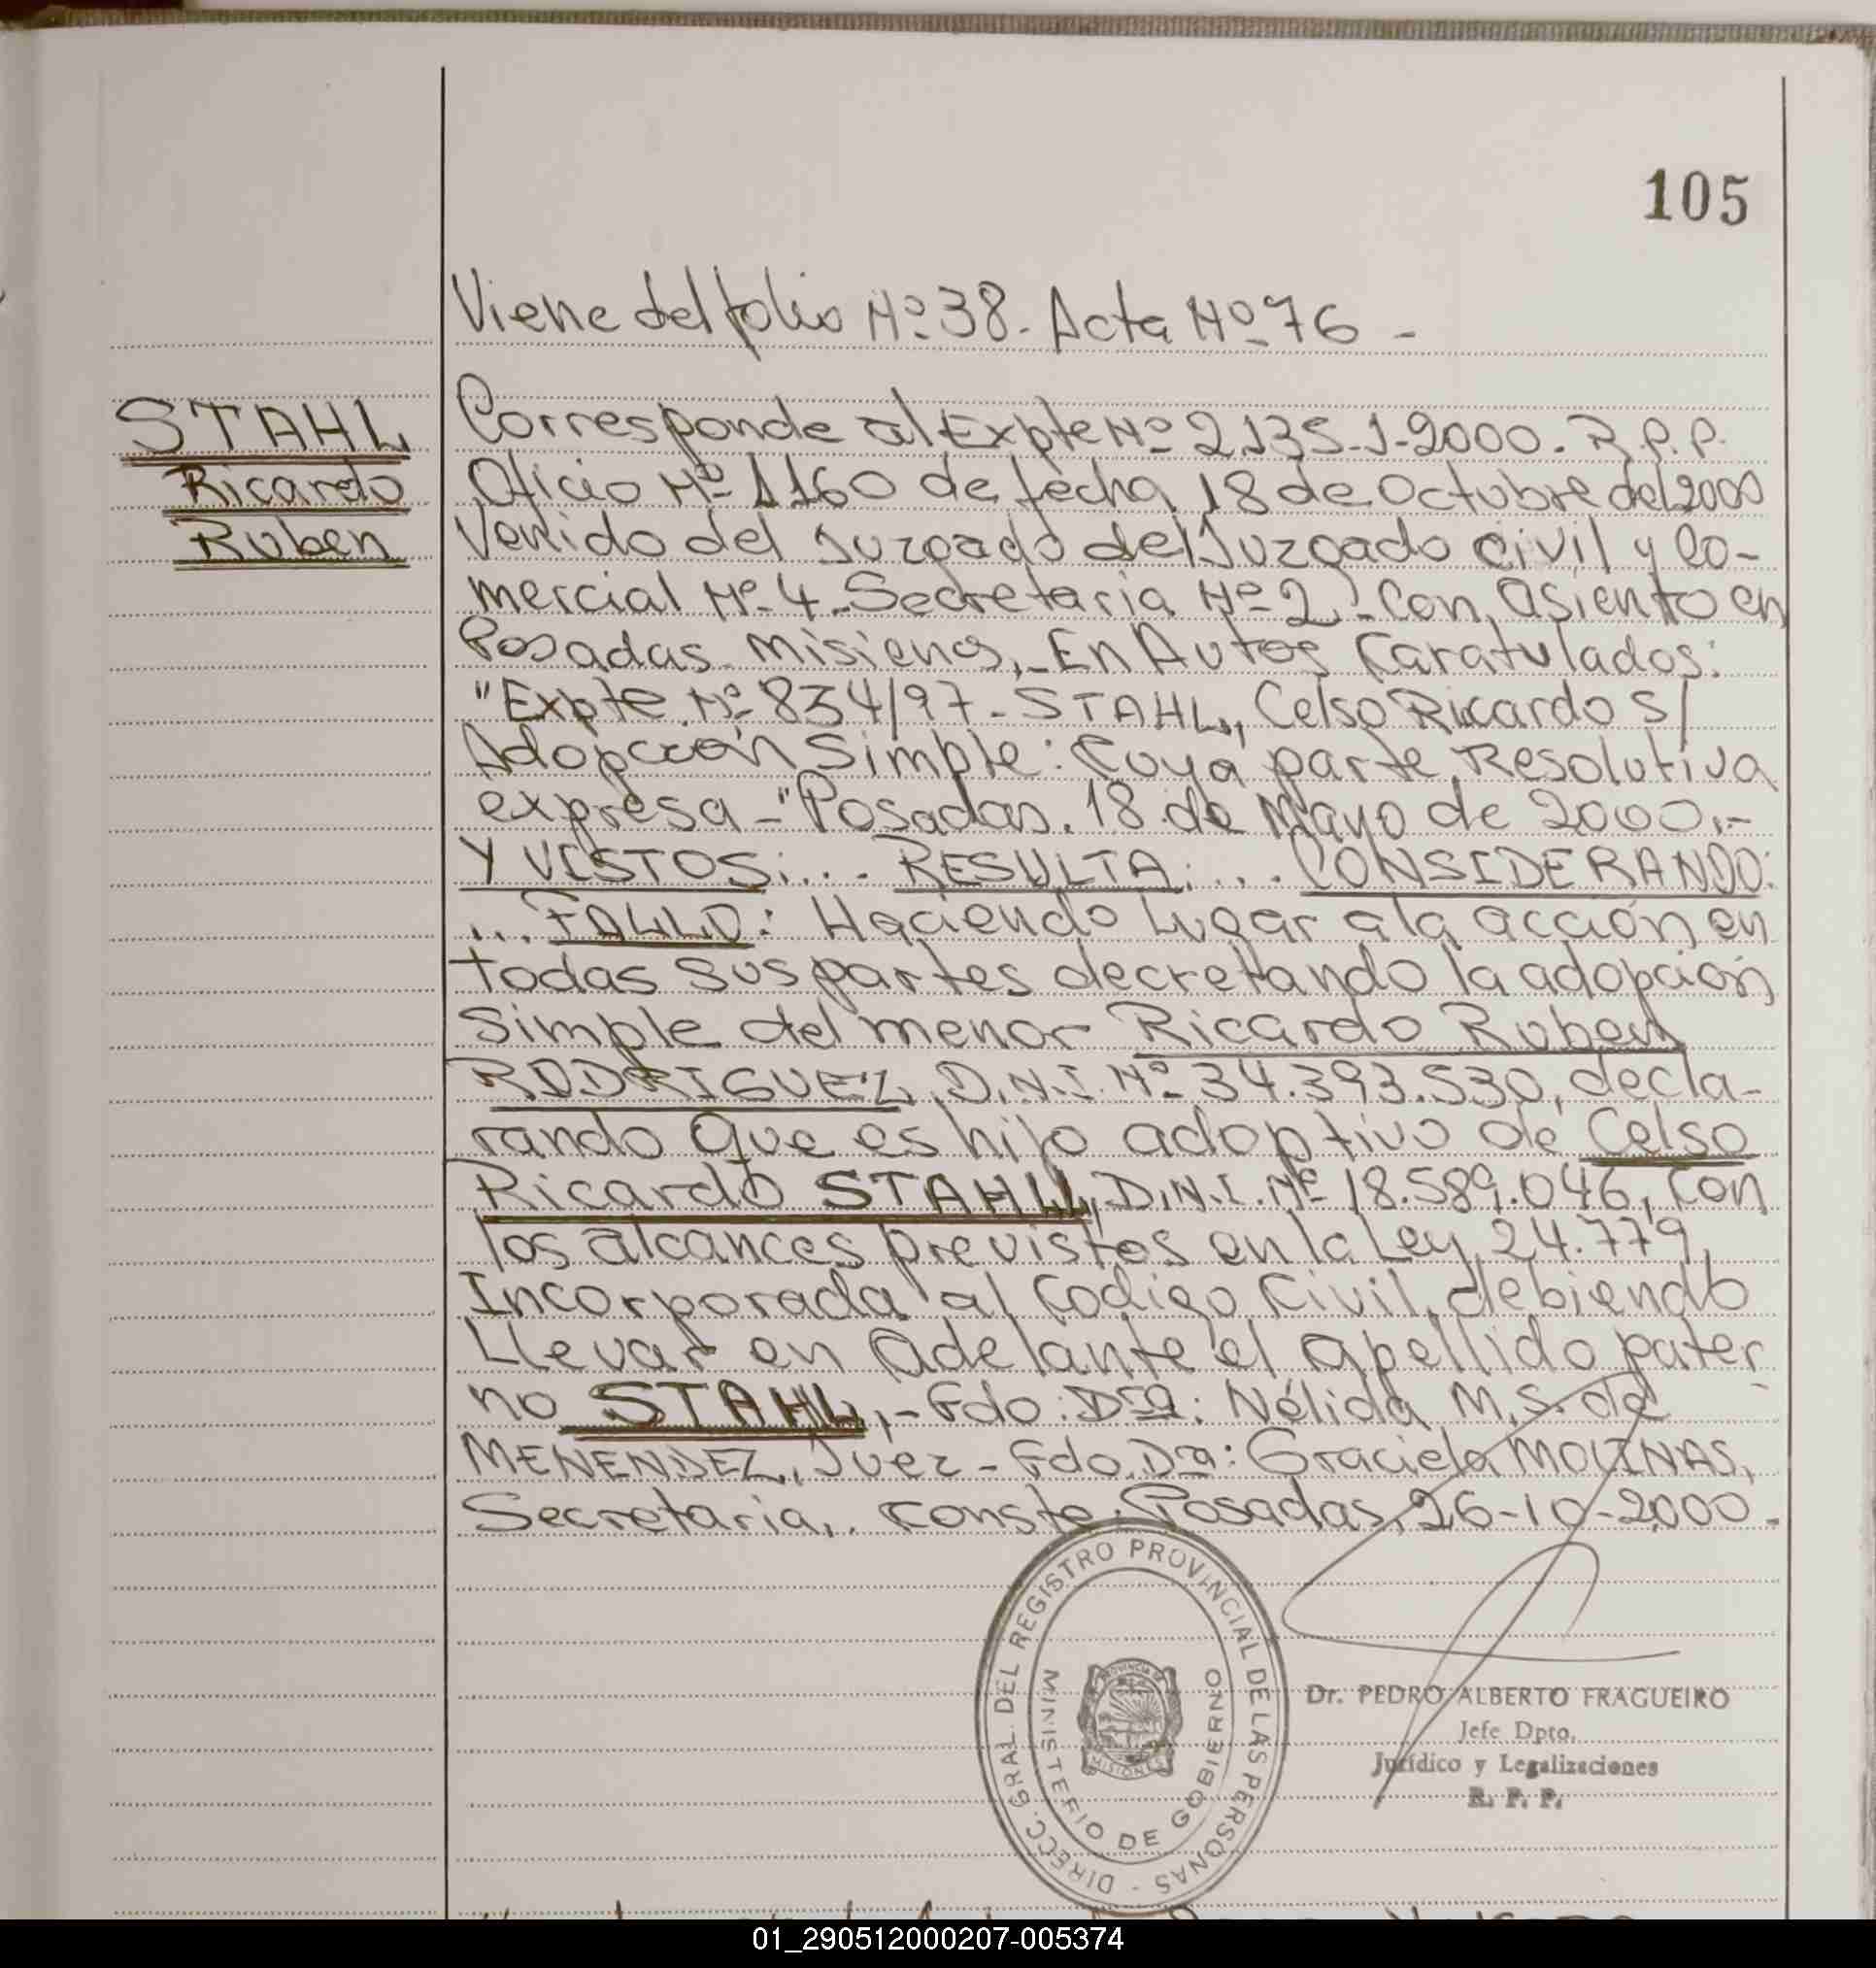 105
Viene del folio Nº 38. Acta Nº 76 -
STAHL
Ricardo
Ruben
Corresponde al Expte Nº 2135-J-2000. R.P.P.
Oficio Nº 1160 de fecha 18 de Octubre del 2000
Venido del Juzgado del Juzgado civil y Co-
mercial Nº 4. Secretaria Nº 2 - Con asiento en
Posadas Misiones, - En Autos Caratulados:
"Expte. Nº 834/97 - STAHL, Celso Ricardo S/
Adopción Simple: Cuya parte Resolutiva
expresa - "Posadas. 18 de Mayo de 2000.-
Y VISTOS:... RESULTA:... CONSIDERANDO:
... FALLO: Haciendo Lugar a la acción en
todas sus partes decretando la adopción
Simple del menor Ricardo Ruben
RODRIGUEZ, D.N.I. Nº 34.393.530, decla-
rando que es hijo adoptivo de Celso
Ricardo STAHL, D.N.I. Nº 18.589.046, con
los alcances previstos en la Ley 24.779,
Incorporada al Codigo Civil, debiendo
Llevar en Adelante el apellido pater
no STAHL,- Fdo: Dra: Nélida M.S. de
MENENDEZ, Juez - Fdo. Dra: Graciela MOLINAS,
Secretaria,. Conste. Posadas, 26-10-2000.
DIRECC. GRAL. DEL REGISTRO PROVINCIAL DE LAS PERSONAS -
MINISTERIO DE GOBIERNO
PROVINCIA DE
MISIONES
Dr. PEDRO ALBERTO FRAGUEIRO
Jefe Dpto.
Jurídico y Legalizaciones
R. P. P.
01_290512000207-005374